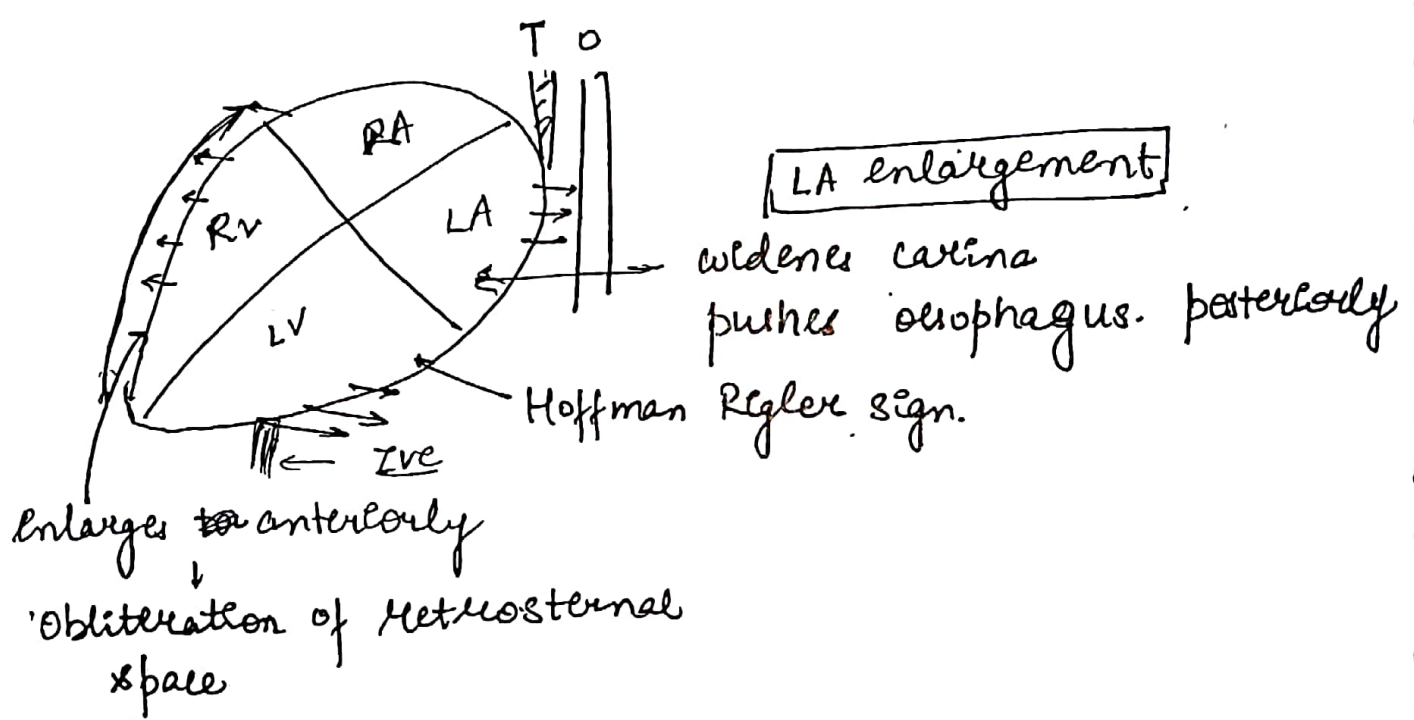 T O
RA
LA enlargement
RV
LA
widenes carina
pushes oesophagus. posteriorly
LV
Hoffman Rigler sign.
IVC
enlarges anteriorly
Obliteration of retrosternal
space